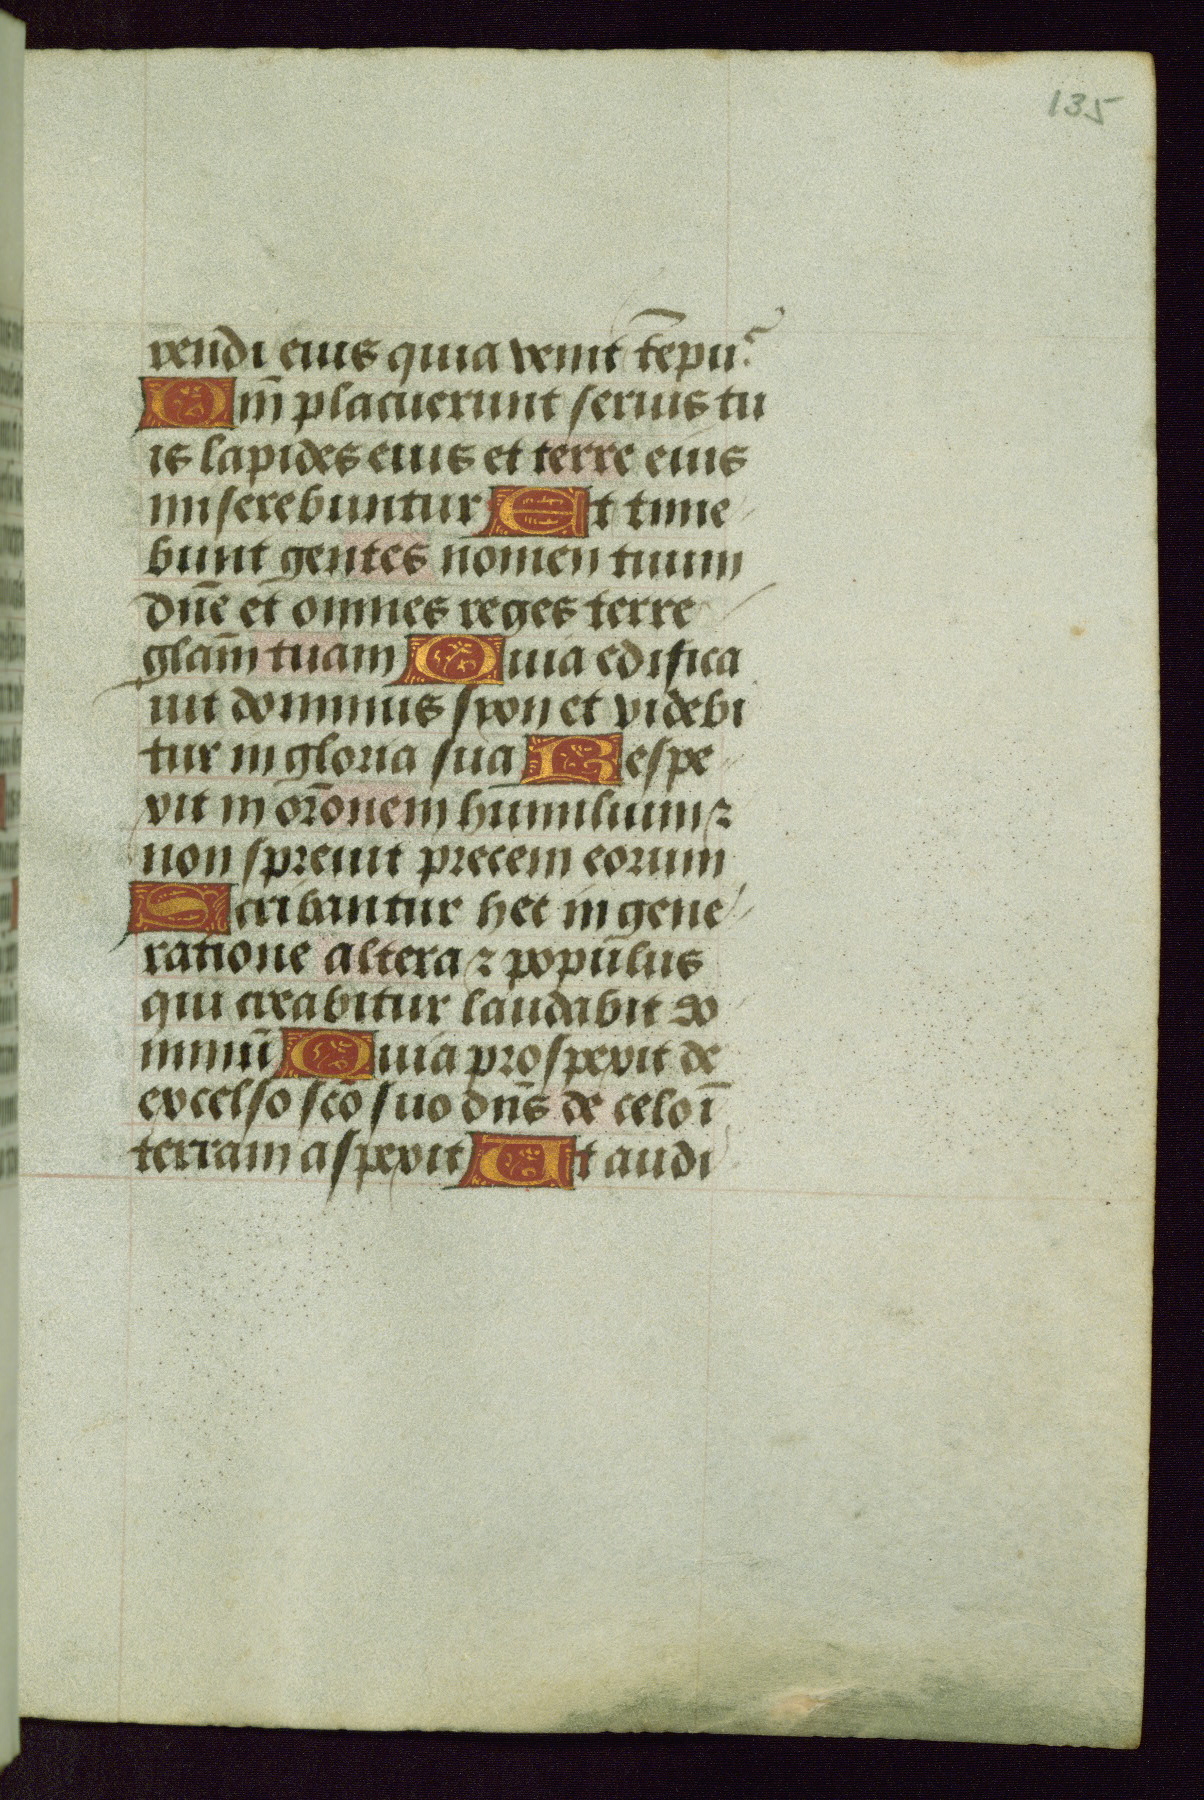 135
rendi eius quia venit te̅pus
Qm̅ placuerunt seruis tu
is lapides eius et terre eius
miserebuntur Et time
bunt gentes nomen tuum
dn̅e et omnes reges terre
glam̅ tuam Quia edifica
uit dominus syon et videbi
tur in gloria sua Respe
xit in or̅onem humilium ⁊
non spreuit precem eorum
Scribantur hec in gene
ratione altera ⁊ populus
qui creabitur laudabit do
minu̅ Quia prospexit de
excelso sc̅o suo dn̅s de celo i̅
terram aspexit Ut audi